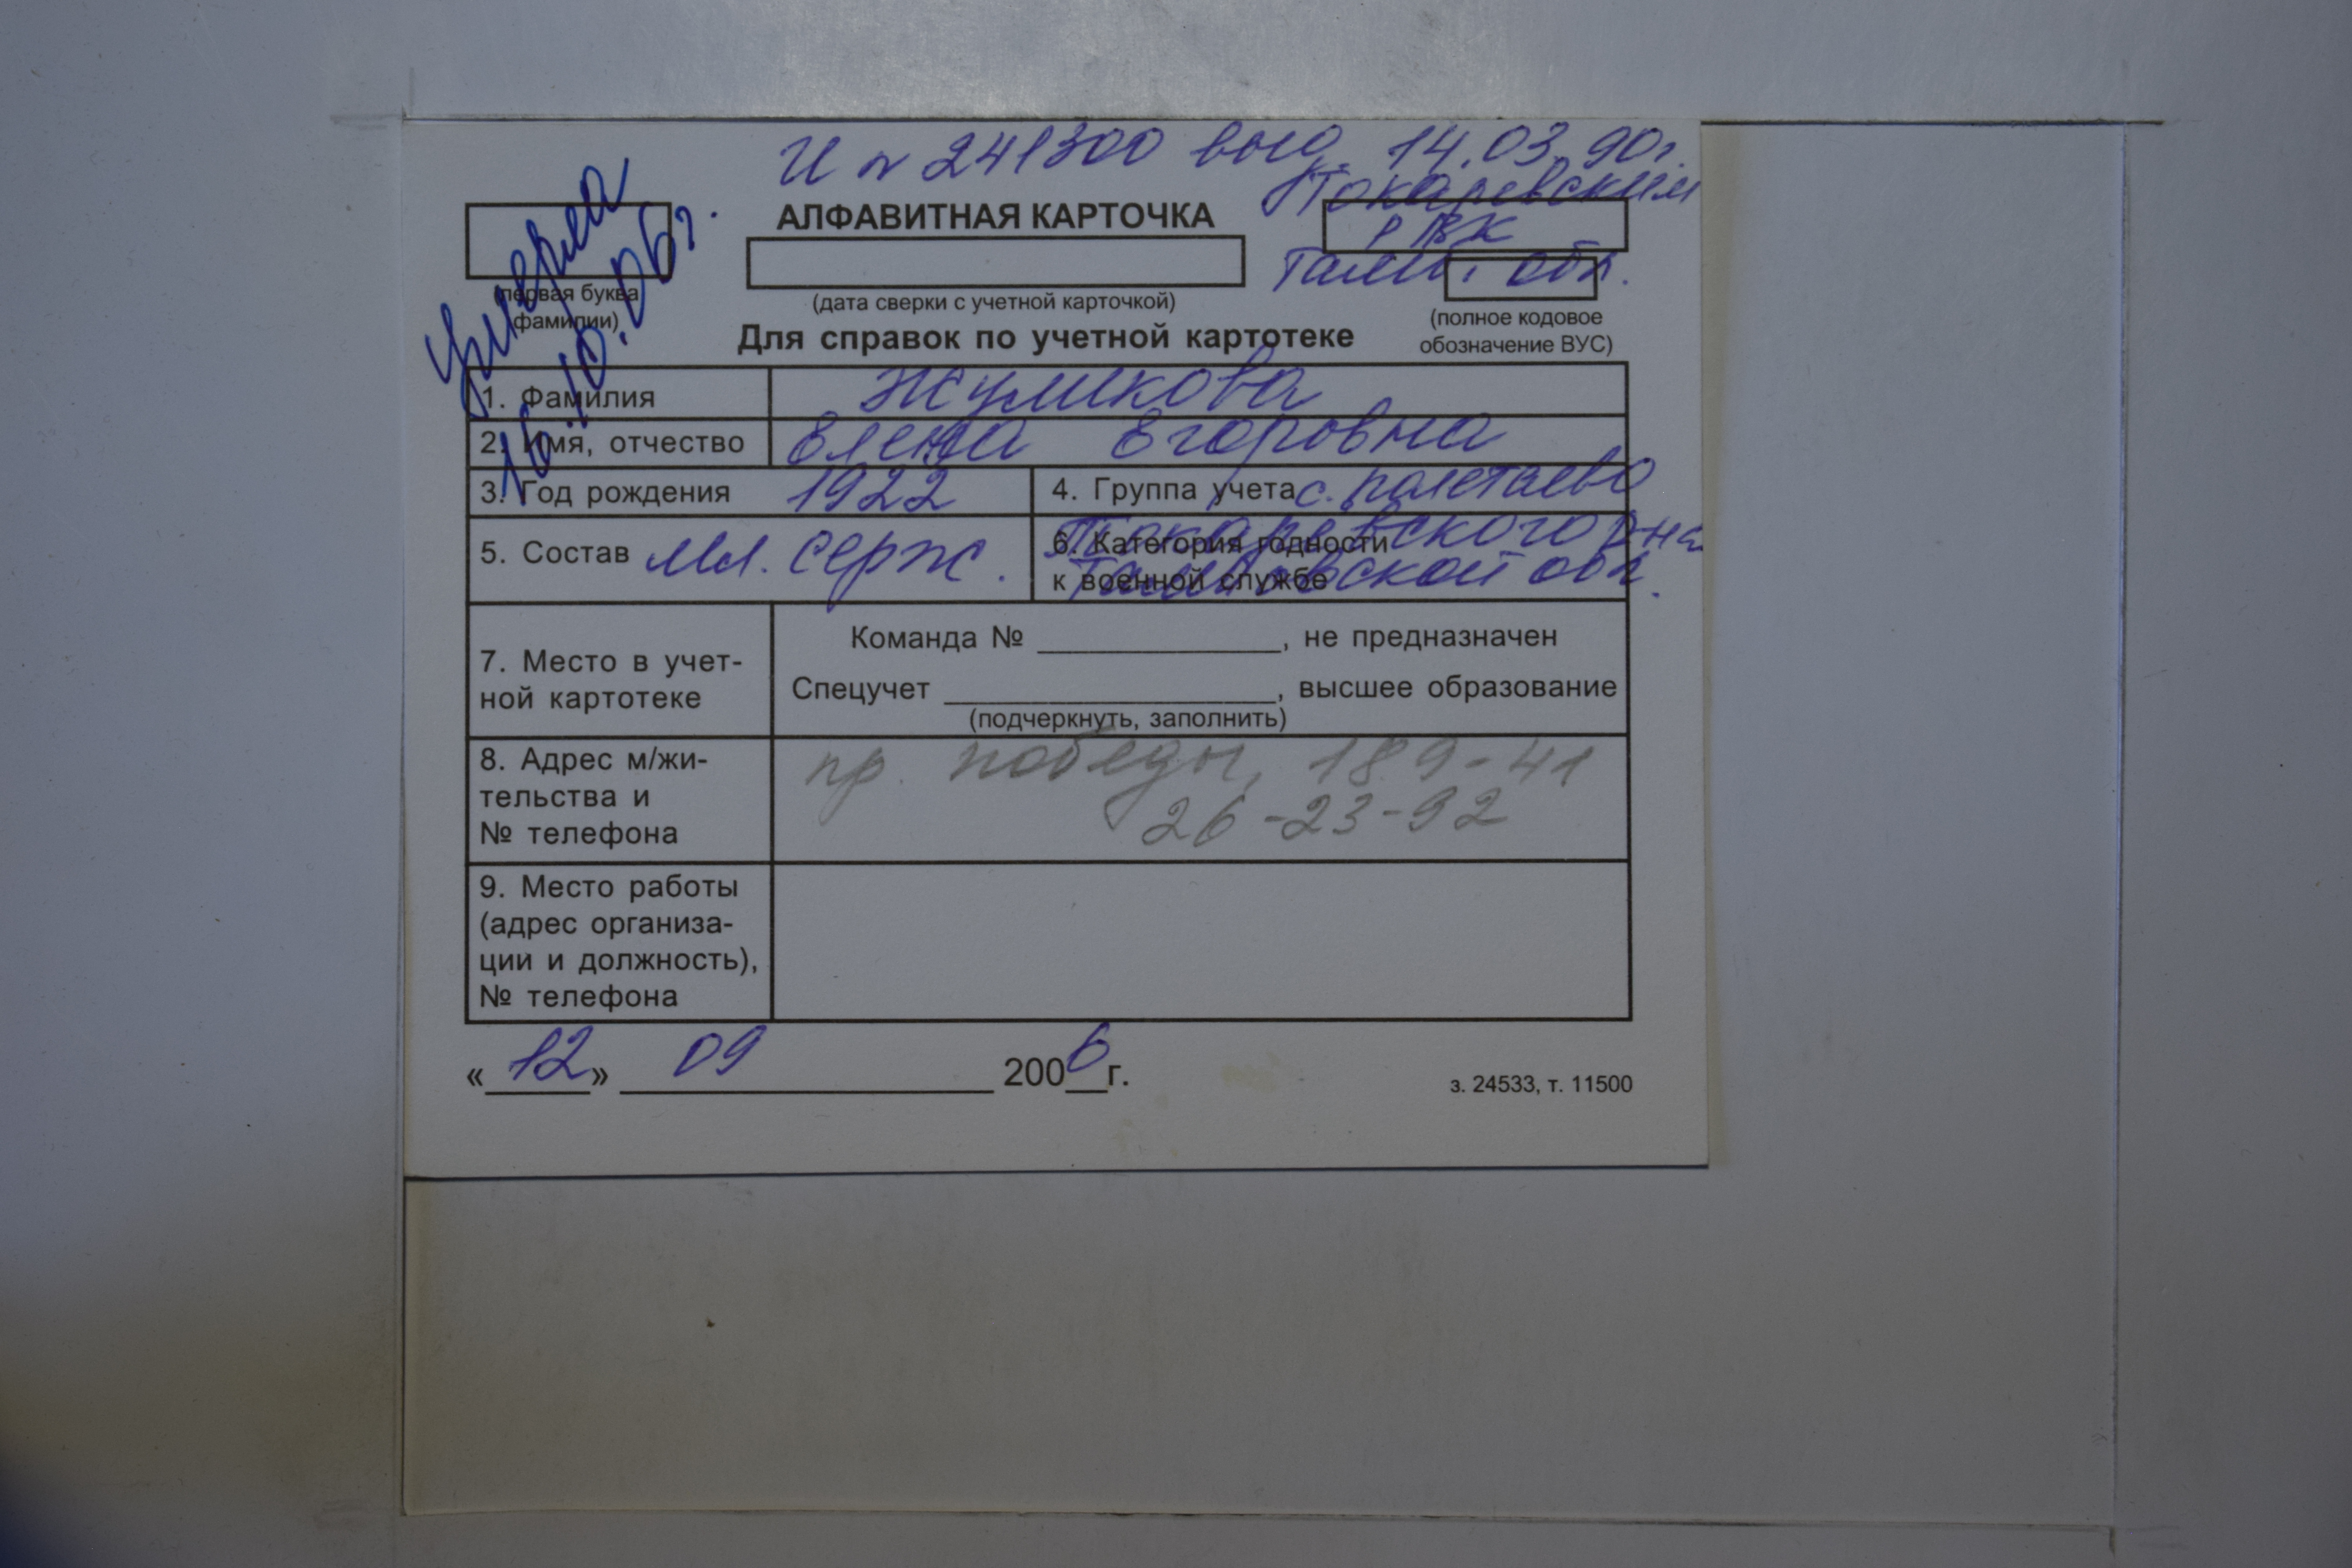 И № 241300 выд. 14.03.90г.
Токаревским
РВК
Тамб. обл.
Умерла
16.10.06г.
АЛФАВИТНАЯ КАРТОЧКА
(первая буква
фамилии)
(дата сверки с учетной карточкой)
(полное кодовое
обозначение ВУС)
Для справок по учетной картотеке
1. Фамилия Жуликова
2. Имя, отчество Елена Егоровна
3. Год рождения 1922
4. Группа учета с. Полетаево
Токаревского р-на
Тамбовской обл.
5. Состав мл. серж.
6. Категория годности
к военной службе
7. Место в учет-
ной картотеке
Команда № ______________, не предназначен
Спецучет ___________________, высшее образование
(подчеркнуть, заполнить)
8. Адрес м/жи-
тельства и
№ телефона
пр. Победы, 189-41
26-23-92
9. Место работы
(адрес организа-
ции и должность),
№ телефона
«12» 09 2006г.
з. 24533, т. 11500